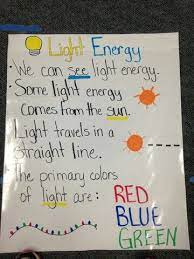 Light Energy
• We can see light energy.
• Some light energy
comes from the sun.
• Light travels in a
straight line.
• The primary colors
of light are: RED
BLUE
GREEN